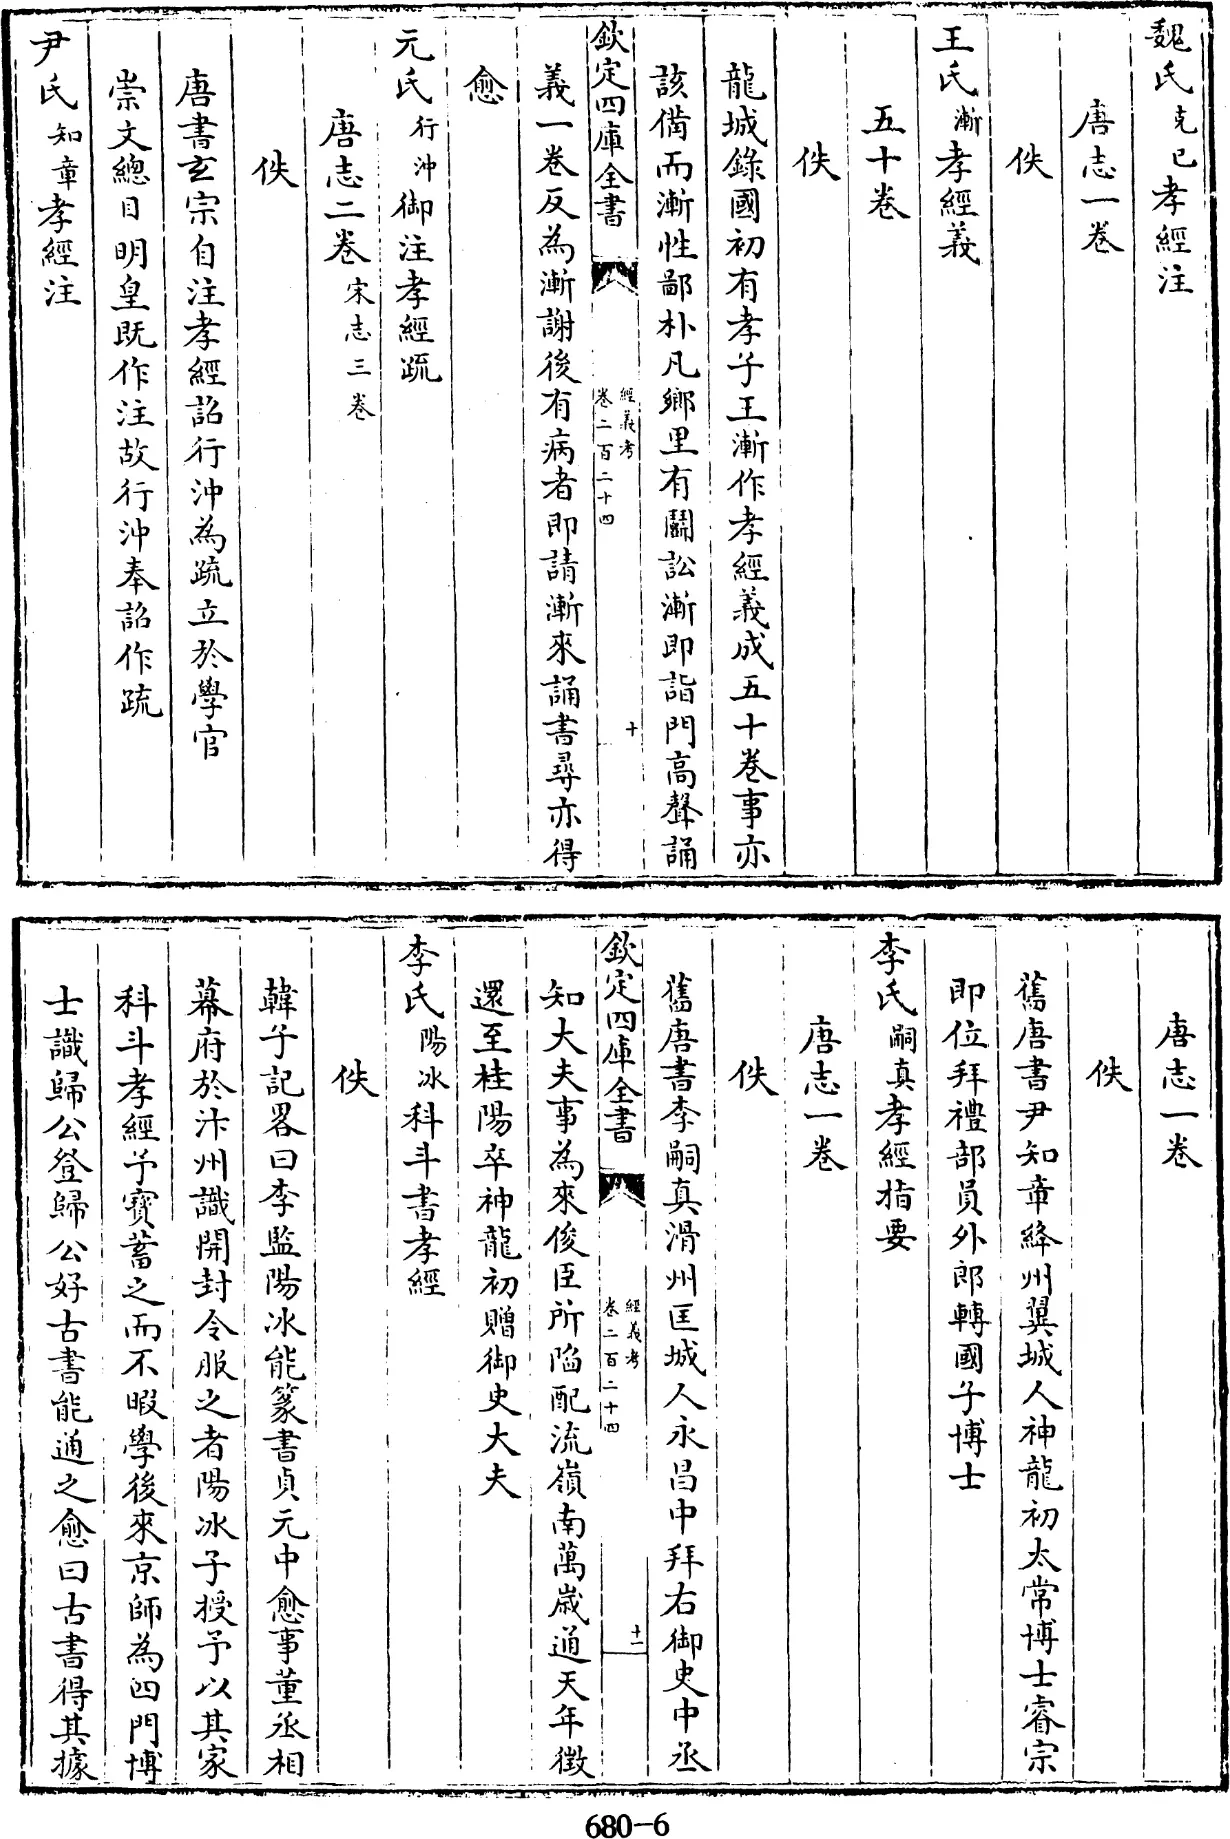 魏氏克已孝經注
唐志一卷
佚
王氏漸孝經義
五十卷
佚
龍城錄國初有孝子王漸作孝經義成五十卷事亦
該備而漸性鄙朴凡鄉里有鬭訟漸即詣門高聲誦
欽定四庫全書
經義考
卷二百二十四
十
義一卷反為漸謝後有病者即請漸來誦書尋亦得
愈
元氏行沖御注孝經疏
唐志二卷宋志三卷
佚
唐書玄宗自注孝經詔行沖為疏立於學官
崇文總目明皇既作注故行沖奉詔作疏
尹氏知章孝經注
唐志一卷
佚
舊唐書尹知章絳州翼城人神龍初太常博士睿宗
即位拜禮部員外郎轉國子博士
李氏嗣真孝經指要
唐志一卷
佚
舊唐書李嗣真滑州匡城人永昌中拜右御史中丞
欽定四庫全書
經義考
卷二百二十四
十一
知大夫事為來俊臣所陷配流嶺南萬歲通天年徵
還至桂陽卒神龍初贈御史大夫
李氏陽冰科斗書孝經
佚
韓子記畧曰李監陽冰能篆書貞元中愈事董丞相
幕府於汴州識開封令服之者陽冰子授予以其家
科斗孝經予寶蓄之而不暇學後來京師為四門博
士識歸公登歸公好古書能通之愈曰古書得其據
680-6